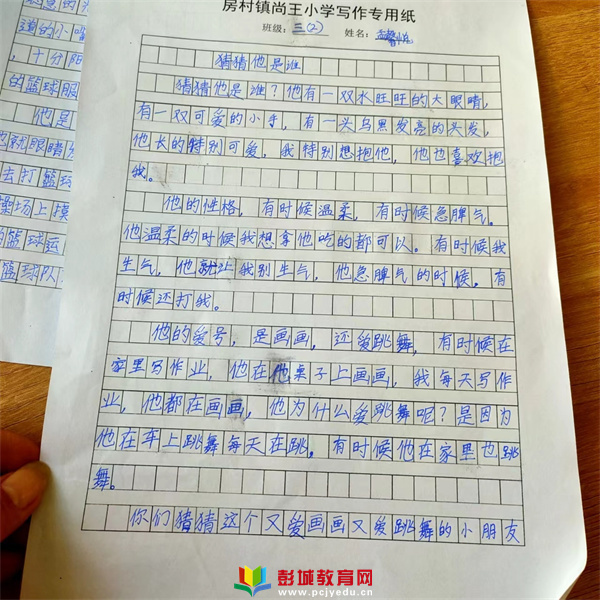 房村镇尚王小学写作专用纸
班级：三(2) 姓名：
猜猜他是谁
猜猜他是谁？他有一双水旺旺的大眼睛，
有一双可爱的小手，有一头乌黑发亮的头发，
他长的特别可爱，我特别想抱他，他也喜欢抱
我。
他的性格，有时候温柔，有时候急脾气。
他温柔的时候我想拿他吃的都可以。有时候我
生气，他就让我别生气，他急脾气的时候，有
时候还打我。
他的爱号，是画画，还爱跳舞，有时候在
家里写作业，他在他桌子上画画，我每天写作
业，他都在画画，他为什么爱跳舞呢？是因为
他在车上跳舞每天在跳。有时候他在家里也跳
舞。
你们猜猜这个又爱画画又爱跳舞的小朋友
道的小嘴
，十分阳
的篮球服
他是
也就眼睛
去打篮球
操场上摸
篮球运
篮球队
彭城教育网
www.pcjyedu.cn